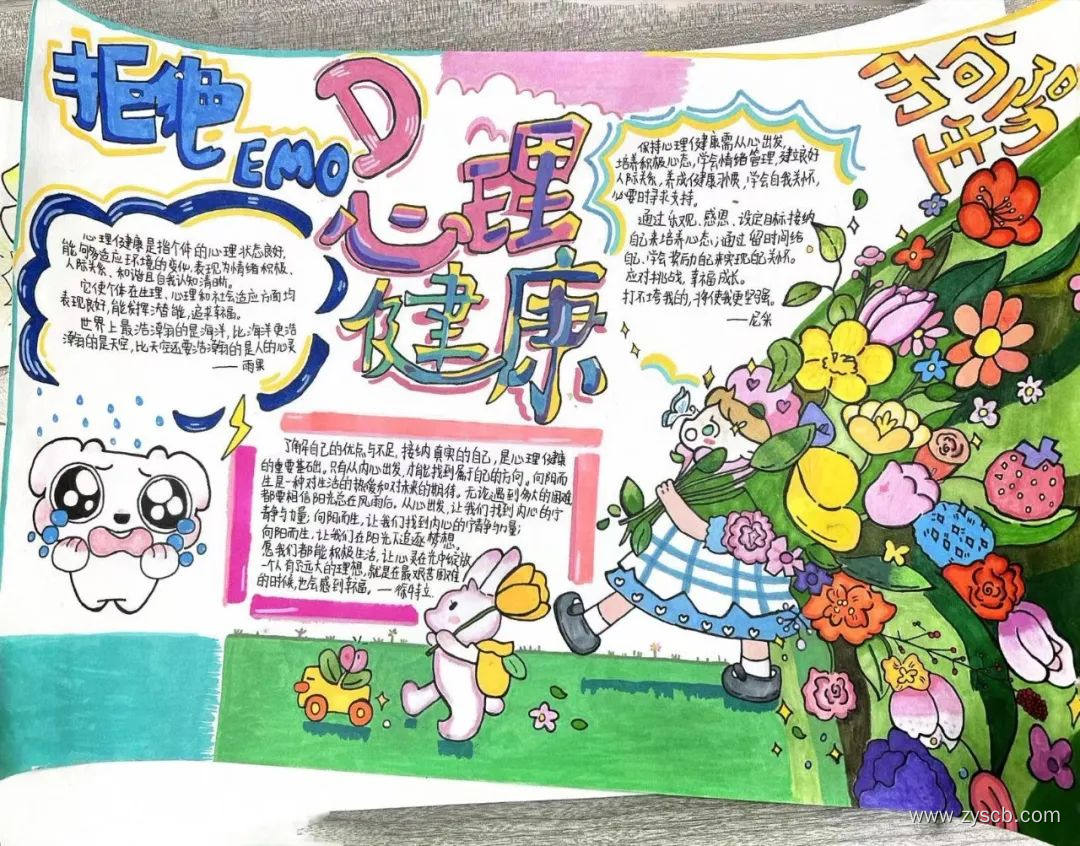 拒绝
EMO
心理
健康
向阳
而生
心理健康是指个体的心理状态良好,
能够适应环境的变化,表现为情绪积极、
人际关系、和谐且自我认知清晰。
它使个体在生理、心理和社会适应方面均
表现良好,能发挥潜能,追求幸福。
世界上最浩瀚的是海洋,比海洋更浩
瀚的是天空,比天空还要浩瀚的是人的心灵
——雨果
保持心理健康需从心出发,
培养积极心态,学会情绪管理,建立良好
人际关系,养成健康习惯,学会自我关怀,
必要时寻求支持。
通过乐观、感恩、设定目标接纳
自己来培养心态;通过留时间给
自己、学会奖励自己来实现自己关怀。
应对挑战,幸福成长。
打不垮我的,将使我更坚强。
——尼采
了解自己的优点与不足,接纳真实的自己,是心理健康
的重要基础。只有从内心出发,才能找到属于自己的方向。向阳而
生是一种对生活的热爱和对未来的期待。无论遇到多大的困难
都要相信阳光总在风雨后。从心出发,让我们找到内心的宁
静与力量;向阳而生,让我们找到内心的宁静与力量;
向阳而生,让我们在阳光下追逐梦想。
愿我们都能积极生活,让心灵在光中绽放
一个人有了远大的理想,就是在最艰苦困难
的时候,也会感到幸福。——徐特立
www.zyscb.com